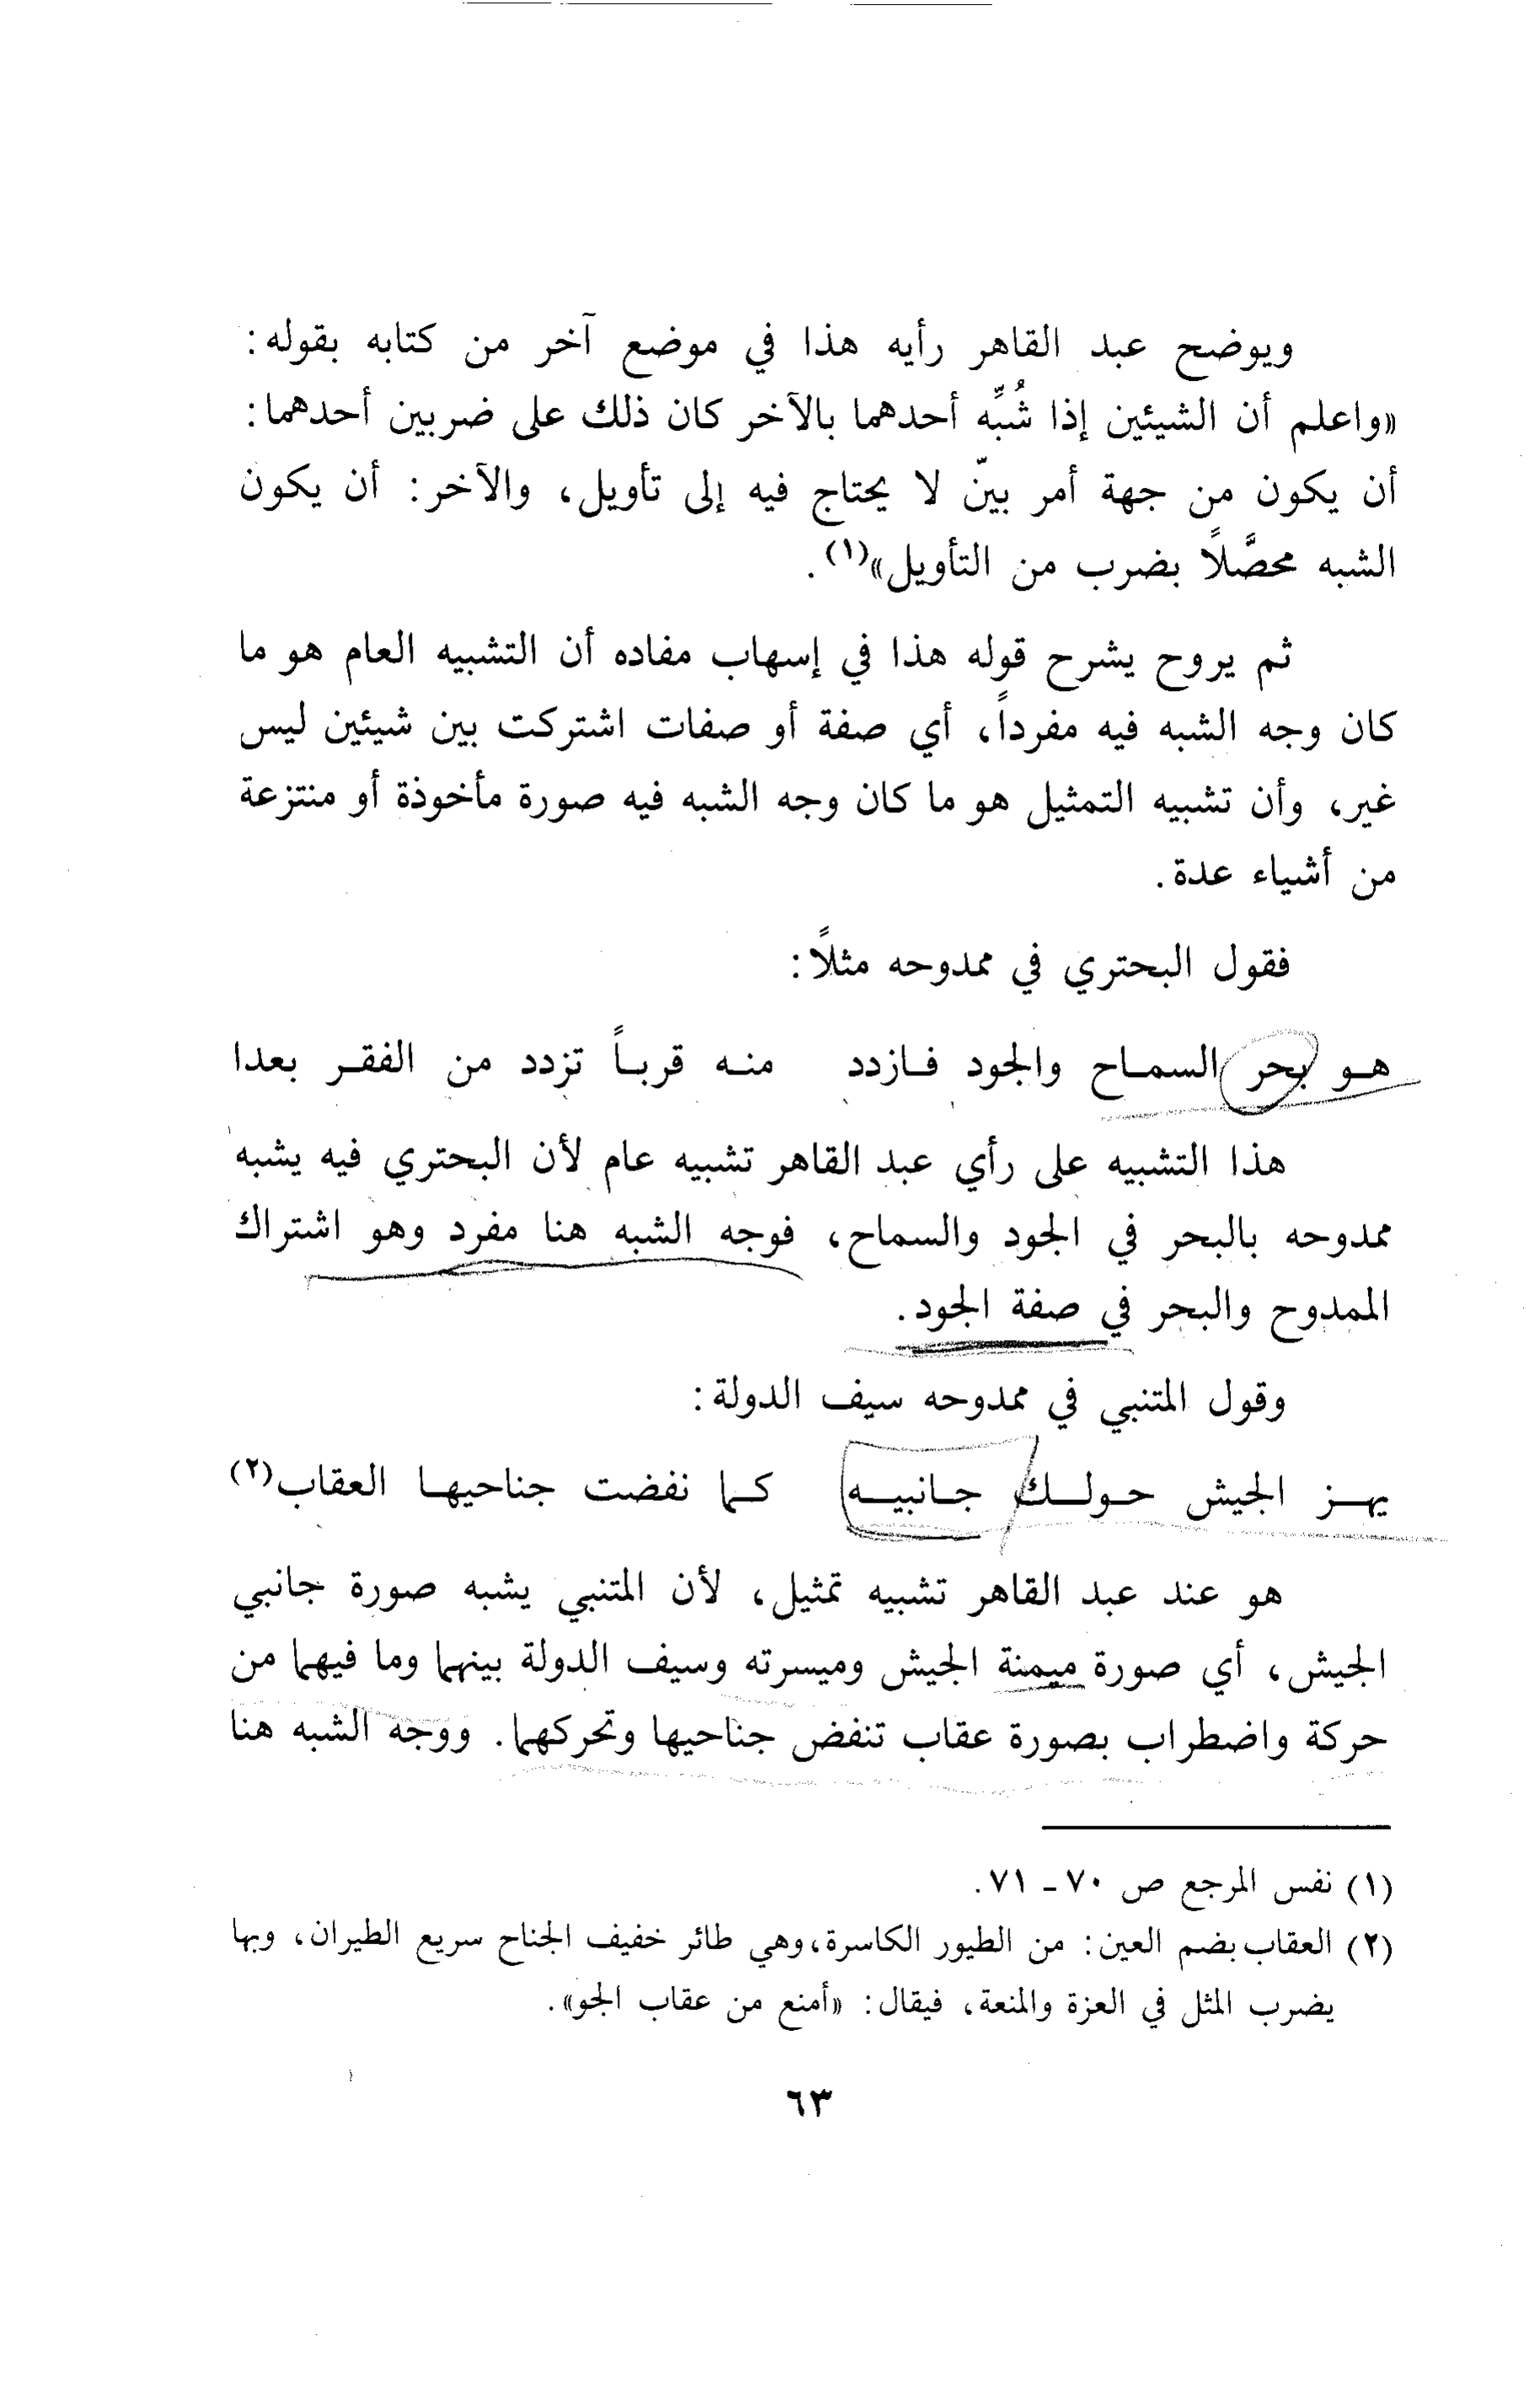 ويوضح عبد القاهر رأيه هذا في موضع آخر من كتابه بقوله:
«واعلم أن الشيئين إذا شُبِّه أحدهما بالآخر كان ذلك على ضربين أحدهما:
أن يكون من جهة أمر بيّن لا يحتاج فيه إلى تأويل، والآخر: أن يكون
الشبه محصَّلاً بضرب من التأويل»(١).
ثم يروح يشرح قوله هذا في إسهاب مفاده أن التشبيه العام هو ما
كان وجه الشبه فيه مفرداً، أي صفة أو صفات اشتركت بين شيئين ليس
غير، وأن تشبيه التمثيل هو ما كان وجه الشبه فيه صورة مأخوذة أو منتزعة
من أشياء عدة.
فقول البحتري في ممدوحه مثلاً:
هـو بحر السمـاح والجود فـازدد منـه قربـاً تزدد من الفقـر بعدا
هذا التشبيه على رأي عبد القاهر تشبيه عام لأن البحتري فيه يشبه
ممدوحه بالبحر في الجود والسماح، فوجه الشبه هنا مفرد وهو اشتراك
الممدوح والبحر في صفة الجود.
وقول المتنبي في ممدوحه سيف الدولة:
يهـز الجيش حـولـك جـانبيـه كـما نفضت جناحيهـا العقاب(٢)
هو عند عبد القاهر تشبيه تمثيل، لأن المتنبي يشبه صورة جانبي
الجيش، أي صورة ميمنة الجيش وميسرته وسيف الدولة بينهما وما فيهما من
حركة واضطراب بصورة عقاب تنفض جناحيها وتحركهما. ووجه الشبه هنا
(١) نفس المرجع ص ٧٠ - ٧١.
(٢) العقاب بضم العين: من الطيور الكاسرة، وهي طائر خفيف الجناح سريع الطيران، وبها
يضرب المثل في العزة والمنعة، فيقال: «أمنع من عقاب الجو».
٦٣